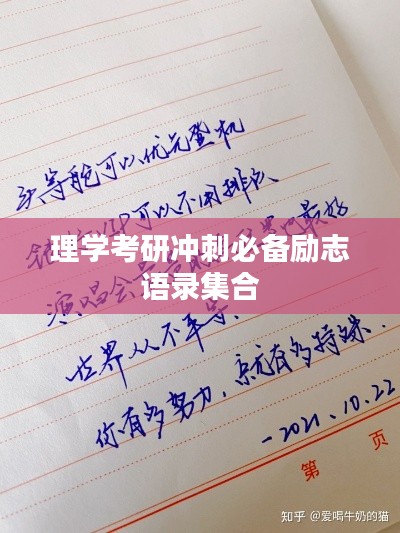 头等舱可以优先登机
可以不用排队
理学考研冲刺必备励志
语录集合
演唱会最
最好
世界从不平等
你有多努力，就有多特殊.
-2021.10.22
第 页
知乎 @爱喝牛奶的猫